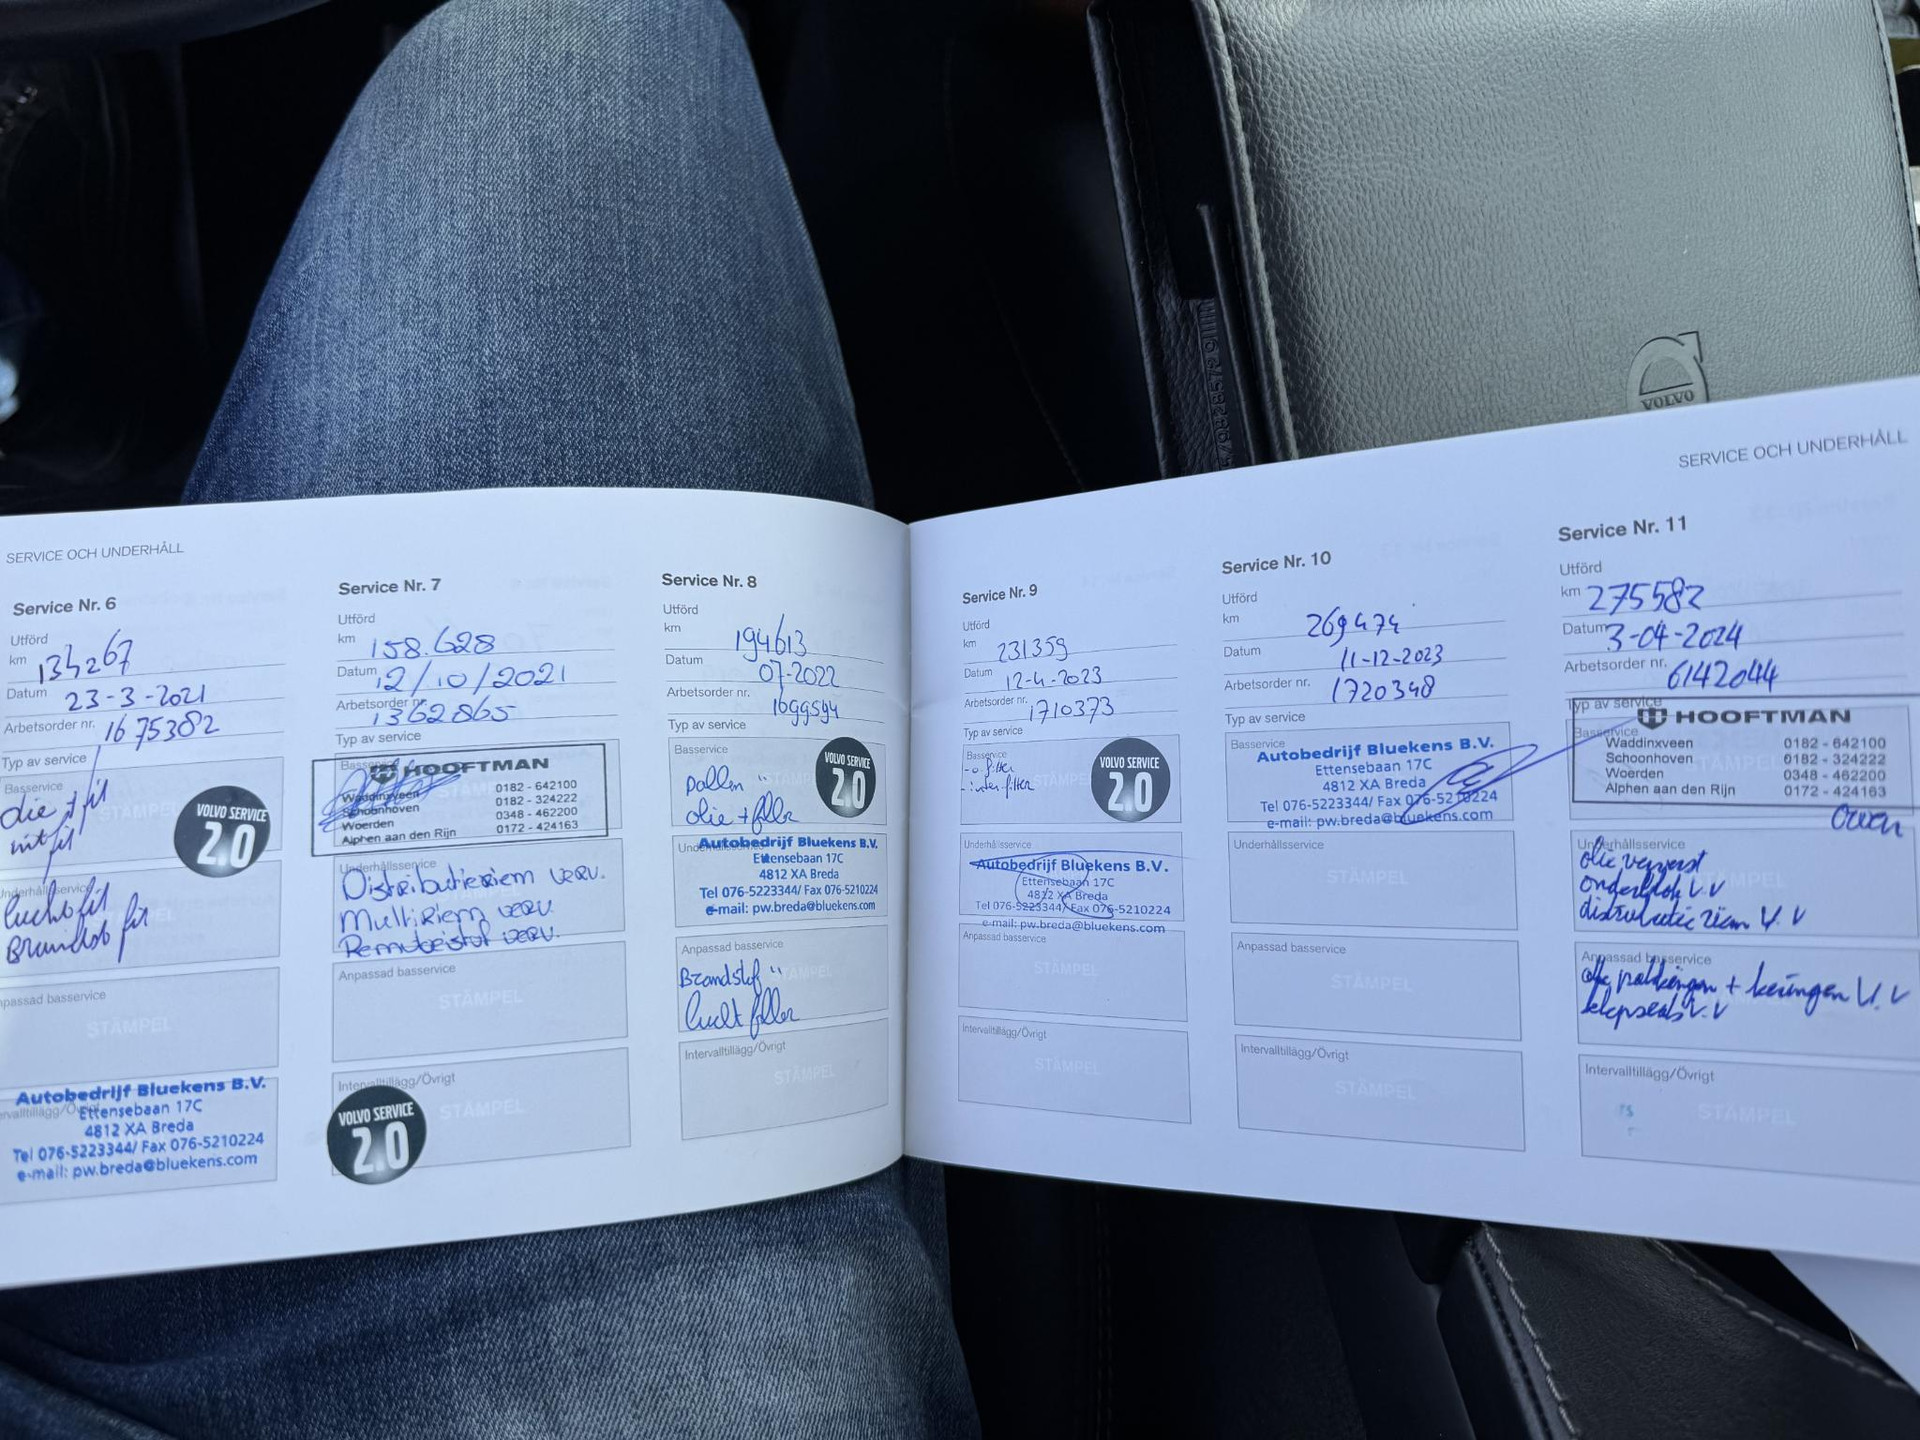 VOLVO
SERVICE OCH UNDERHÅLL
Service Nr. 6
Utförd
km 134267
Datum 23-3-2021
Arbetsorder nr. 1675382
Typ av service
Basservice
olie + fit
int fit
VOLVO SERVICE
2.0
Underhållsservice
lucht fit
Brandstof fit
Anpassad basservice
STÄMPEL
Autobedrijf Bluekens B.V.
Ettensebaan 17C
4812 XA Breda
Tel 076-5223344/ Fax 076-5210224
e-mail: pw.breda@bluekens.com
Service Nr. 7
Utförd
km 158.628
Datum 12/10/2021
Arbetsorder nr. 1362865
Typ av service
HOOFTMAN
Waddinxveen 0182 - 642100
Schoonhoven 0182 - 324222
Woerden 0348 - 462200
Alphen aan den Rijn 0172 - 424163
Underhållsservice
Distributieriem verv.
Multiriem verv.
Remvloeistof verv.
Anpassad basservice
STÄMPEL
Intervalltillägg/Övrigt
STÄMPEL
VOLVO SERVICE
2.0
Service Nr. 8
Utförd
km 194613
Datum 07-2022
Arbetsorder nr. 1699594
Typ av service
Basservice
pollen "
olie + filter
VOLVO SERVICE
2.0
Autobedrijf Bluekens B.V.
Ettensebaan 17C
4812 XA Breda
Tel 076-5223344/ Fax 076-5210224
e-mail: pw.breda@bluekens.com
Anpassad basservice
Brandstof "
lucht filter
Intervalltillägg/Övrigt
STÄMPEL
Service Nr. 9
Utförd
km 231359
Datum 12-4-2023
Arbetsorder nr. 1710373
Typ av service
Basservice
- o. filter
- inter. filter
VOLVO SERVICE
2.0
Underhållsservice
Autobedrijf Bluekens B.V.
Ettensebaan 17C
4812 XA Breda
Tel 076-5223344/ Fax 076-5210224
e-mail: pw.breda@bluekens.com
Anpassad basservice
STÄMPEL
Intervalltillägg/Övrigt
STÄMPEL
Service Nr. 10
Utförd
km 269474
Datum 11-12-2023
Arbetsorder nr. 1720348
Typ av service
Basservice
Autobedrijf Bluekens B.V.
Ettensebaan 17C
4812 XA Breda
Tel 076-5223344/ Fax 076-5210224
e-mail: pw.breda@bluekens.com
Underhållsservice
STÄMPEL
Anpassad basservice
STÄMPEL
Intervalltillägg/Övrigt
STÄMPEL
SERVICE OCH UNDERHÅLL
Service Nr. 11
Utförd
km 275582
Datum 3-04-2024
Arbetsorder nr. 6142044
Typ av service
HOOFTMAN
Waddinxveen 0182 - 642100
Schoonhoven 0182 - 324222
Woerden 0348 - 462200
Alphen aan den Rijn 0172 - 424163
Owen
Underhållsservice
olie ververst
onderblok V.V
distributie riem V.V
Anpassad basservice
olie pakkingen + keringen V.V
klepseals V.V
Intervalltillägg/Övrigt
STÄMPEL